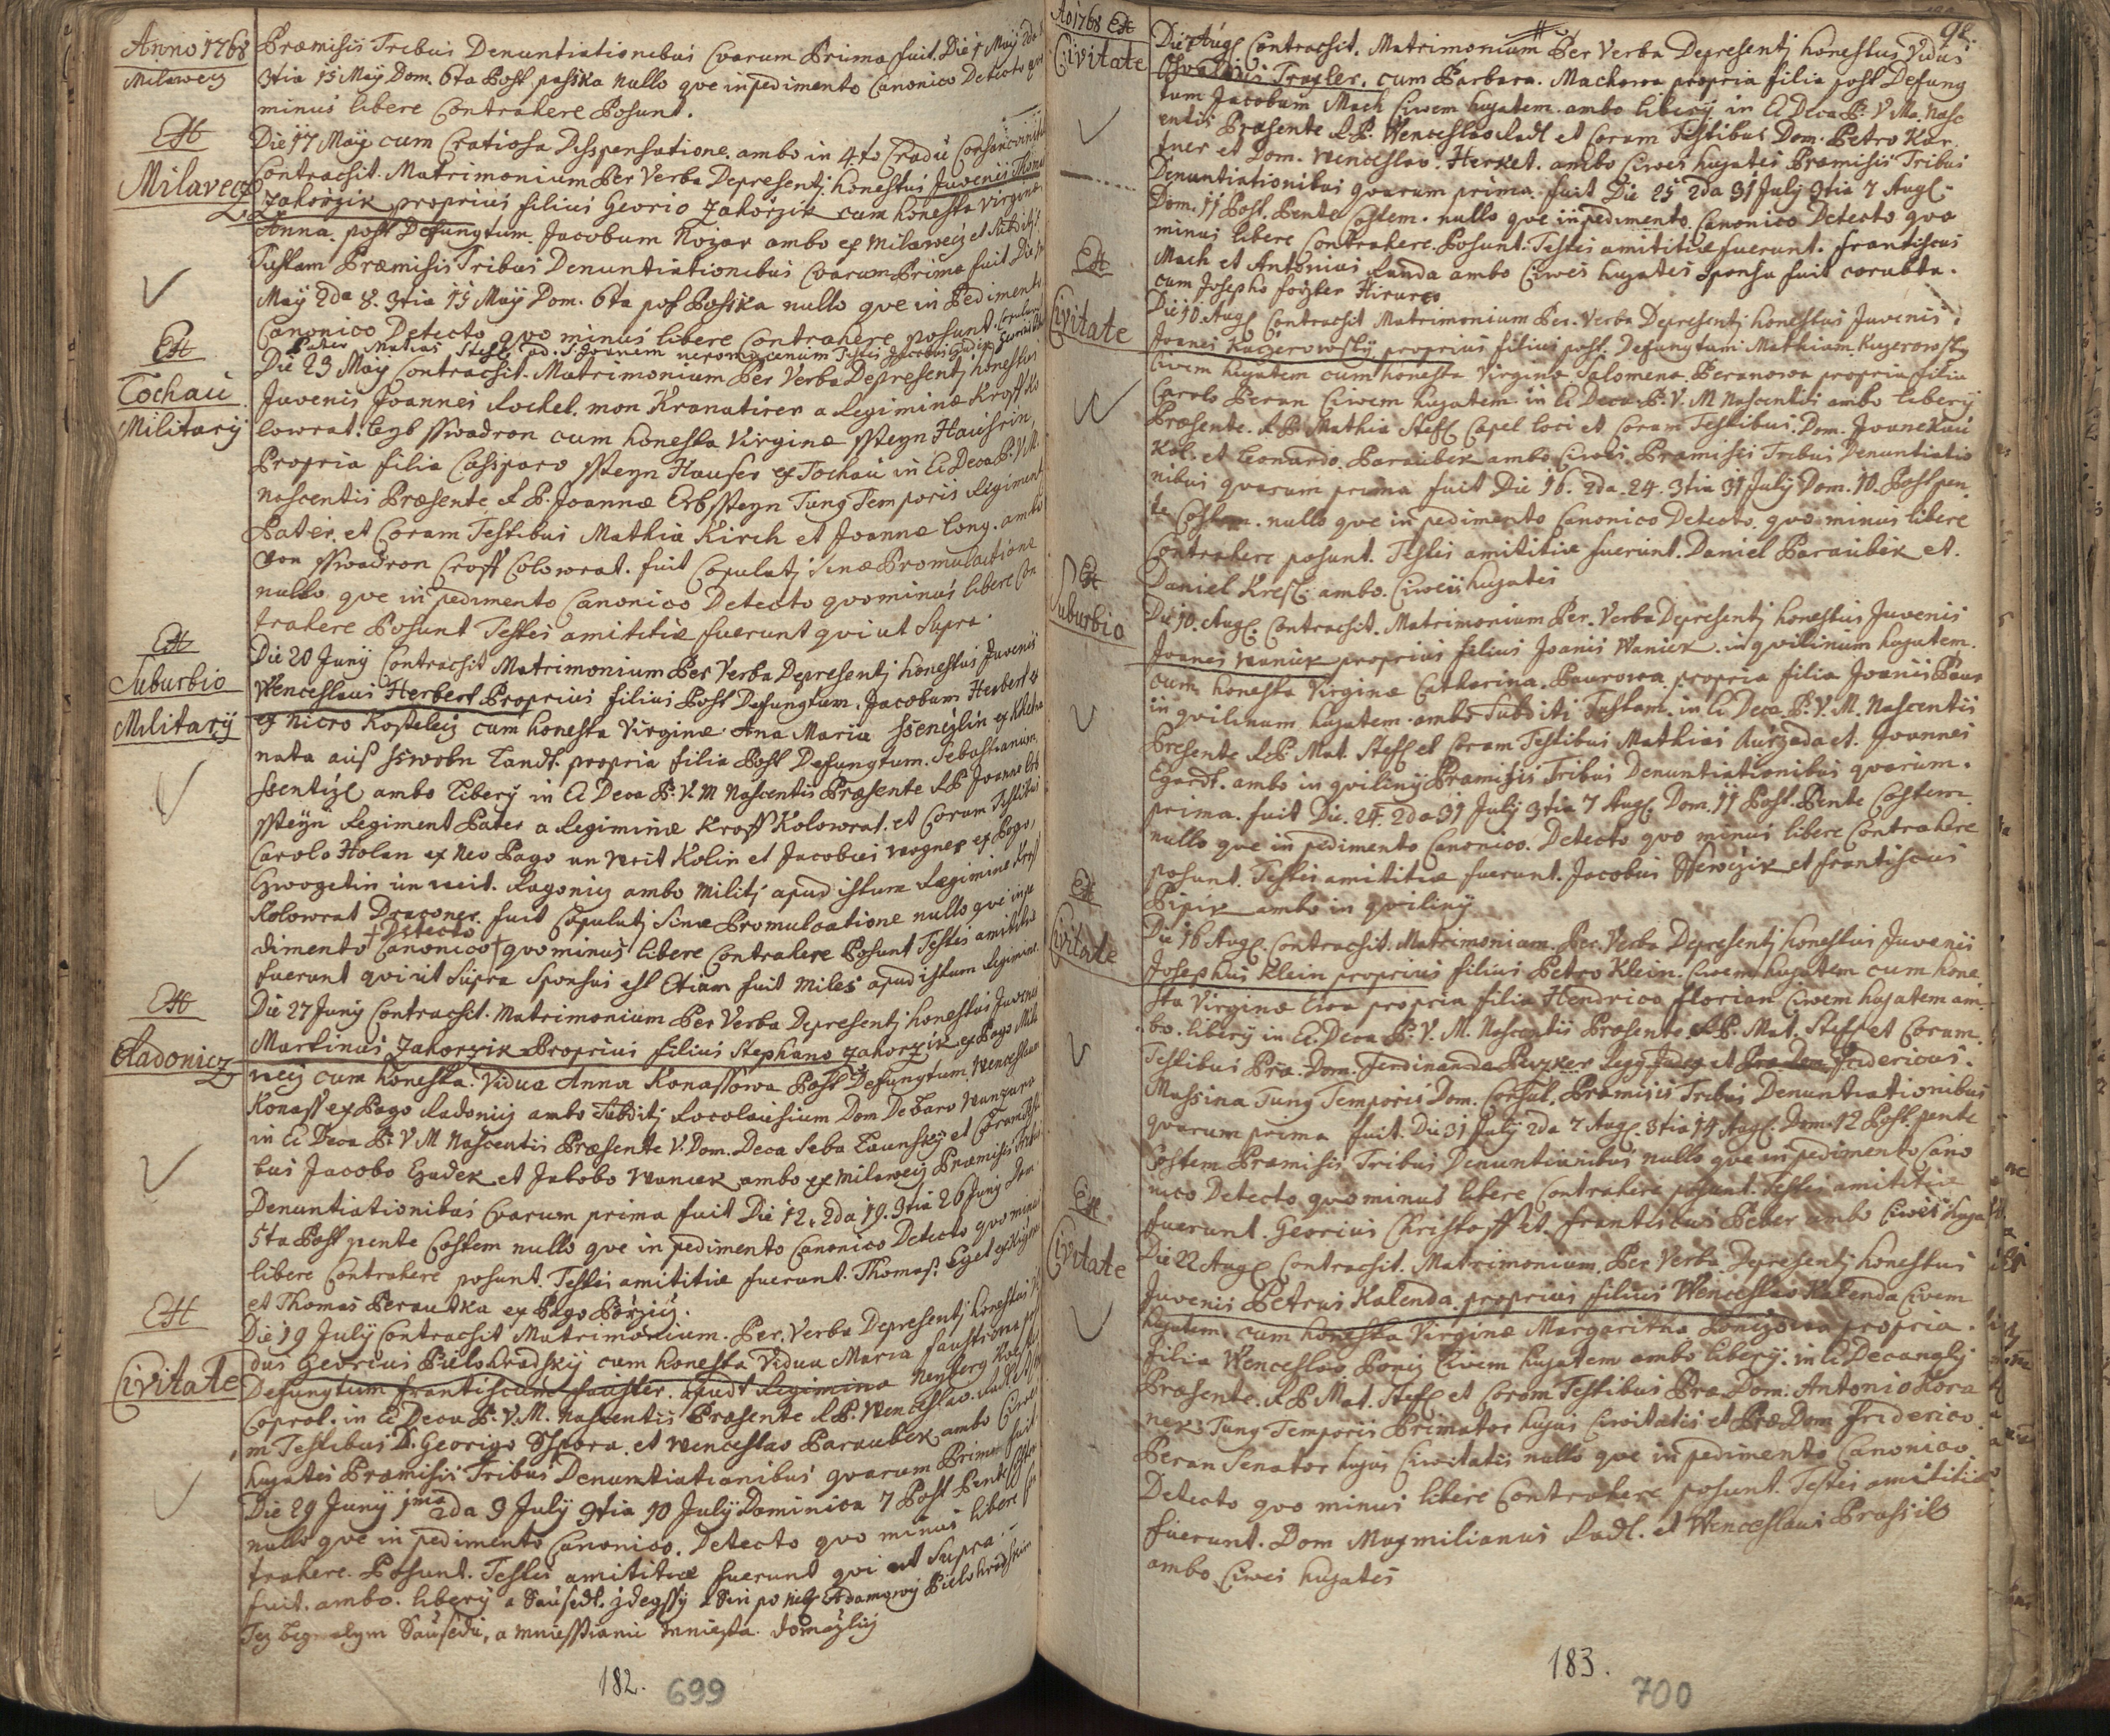 Anno 1768
Milawecz
Præmisis Tribus Denuntiationibus Qvarum Prima fuit Die 1 Maÿ 2da
3tia 15 Maÿ Dom. 6ta Post paska nullo qve inpedimento Canonico Detecto qvo
minus libere Contrahere Posunt.
Milavecz
Die 17 Maÿ cum Gratiosa Disspensatione ambo in 4to Gradu
Contracsit. Matrimonium Per Verba Depresentj. honestus Juvenis
Zahorzik proprius filius Georio Zahorzik cum honesta Virgine
Anna post Defungtum Jacobum Kozar ambo ex Milawecz et Subditj
Tustam Præmisis Tribus Denuntiationibus Qvarum Prima fuit Die
Maÿ 2da 8. 3tia 15 Maÿ Dom. 6ta post Posska nullo qve in Pedimento
Canonico Detecto qvo minus libere Contrahere posunt.
Tochau
Military
Die 23 Maÿ Contracsit. Matrimonium Per Verba Depresentj honestus
Juvenis Joannes Rockel. mon Kranatirer a Regimine Kroff Ko
lowrat. leyb sswadron cum honesta Virgine ssteyn Hausrin
Propria filia Casparo ssteyn Hauser ex Tochau in Ec Deca P. V. M.
nascentis Præsente R P. Joanne Erbssteyn Tung Temporis Regiment
Pater. et Coram Testibus Mathia Kirch et Joanne Cong. ambo
von sswadron Croff Colowrat. fuit Copulatj Sine Promulcatione
nullo qve in pedimento Canonico Detecto qvominus libere Con
trahere Posunt Testes amititiæ fuerunt qvi ut Supra.
Suburbio
Military
Die 20 Junÿ Contracsit Matrimonium Per Verba Depresentj honestus Juvenis
Wenceslaus Herbert Proprius filius Post Defungtum. Jacobum Herbert
ex nicro Kosteletz cum honesta Virgine Ana Maria
nata aus sswobn Landt. propria filia Post Defungtum. Sebastianum
ambo Liberÿ in Ec Deca P. V. M Nascentis Præsente R P Joanne Erb
ssteyn Regiment Pater a Regimine Kroff Kolowrat. et Coram Testibus
Carolo Holan ex Neo Pago un weit Kolin et Jacobus Wogner ex Pogo
un weit. Ragonicz ambo Militj apud istum Regimine Kroff
Kolowrat Draconer. fuit Copulatj Sine Promulcatione nullo qve inpe
dimento Canonico † Detecto qvominus libere Contrahere Posunt Testes amititiæ
fuerunt qvi ut Supra Sponsus est Etiam fuit Miles apud istum Regimine.
Radonicz
Die 27 Junÿ Contracsit. Matrimonium Per Verba Depresentj honestus Juvenis
Martinus Zahorzik Proprius filius Stephano Zahorzik ex Pago Mila
wecz cum honesta. Vidua Anna Konassowa Post Defungtum Wenceslaum
Konass ex Pago Radonicz ambo Subditj
in Ec Deca P. V M Nascentis Præsente V. Dom. Deca Seba Taunskÿ et Coram Testi
bus Jacobo Hadek et Jakobo Wanick ambo ex Milawecz Præmisis Tribus
Denuntiationibus Qvarum prima fuit Die 12. 2da 19. 3tia 26 Junÿ Dom
5ta Post pente Costem nullo qve in pedimento Canonico Detecto qvo minus
libere Contrahere posunt. Testes amititiæ fuerunt. Thomas
et Thomas Perautka ex Pago Porzicz.
Civitate
Die 19 Julÿ Contracsit Matrimonium. Per. Verba Depresentj honestus Vi
dus Georius Bielohradskÿ cum honesta Vidua Maria faustrowa post
Defungtum frantiscum fauster. apudt Regimine
Coprol. in Ec Deca P. V. M. nascentis Præsente R P. Wenceslao. Radl et Cora
m Testibus D. Georigo Sspora. et Wenceslao Paraubek ambo Ciwes
hujates Præmisis Tribus Denuntiationibus qvarum Prima fuit
Die 29 Junÿ 1ma 2da 3 Julÿ 3tia 10 Julÿ Dominica 7 Post Pente Costem
nullo qve in pedimento Canonico. Detecto qvo minus libere Con
trahere. Posunt. Testes amititiæ fuerunt qvi ut Supra.
fuit. ambo. liberÿ a Sausedt. zdegssÿ a Sin po neb. Adamowÿ Bielohradskim
Sausedu, a mniesstianu mniesta domazlicz
182.
699
Ao 1768
98.
Civitate
Die 7 Aug. Contracsit. Matrimonium Per Verba Depresentj honestus Vidus
Traxler. cum Barbara. Machowa propria filia post Defung
tum Jacobum Mach Ciwem hujatem. ambo liberÿ in Ec Deca P. V Ma. Nasc
entis Præsente R P. Wenceslao Radl et Coram Testibus Dom. Petro Kar
tner et Dom. Wenceslao. Herket. ambo Ciwes hujates Præmisis Tribus
Denuntiationibus qvarum prima. fuit Die 25 2da 31 Julÿ 3tia 7 Aug.
Dom. 11 Post. Pente Costem. nullo qve inpedimento Canonico Detecto qvo
minus libere Contrahere Posunt. Testes amititiæ fuerunt. frantiscus
Mach et Antonius Randa ambo Ciwes hujates Sponsa fuit corubta.
cum Josepho
Civitate
Die 10. Aug Contracsit Matrimonium Per. Verba Depresentj honestus Juvenis
Joanes Kuczerowskÿ proprius filius post. Defungtum. Mathiam. Kuzerowskÿ
Ciwem hujatem cum honesta Virgine Salomena Beranowa propria filia
Carolo Beran Ciwem hujatem in Ec Deca P. V. M Nascentis ambo liberÿ
Præsente. R P Mathia Steff. Capel loci et Coram Testibus. Dom.
Kol. et Leonardo. Paraubek ambo Ciwes. Præmisis Tribus Denuntiatio
nibus qvarum prima fuit Die 16. 2da. 24. 3tia 31 Julÿ Dom. 10. Post pen
te Costem. nullo qve in pedimento Canonico Detecto. qvo minus libere
Contrahere posunt. Testes amititiæ fuerunt. Daniel Paraubek et.
Daniel ambo. Ciwes hujates
Suburbio
Die 10. Aug. Contracsit. Matrimonium Per. Verba Depresentj honestus Juvenis
Joanes Waniek proprius filius Joanis Waniek. inqvilinum hujatem.
cum honesta Virgine Catharina. Baurowa. propria filia Joanis Baur
inqvilinum hujatem. ambo Subditi Tustam. in Ec Deca P. V. M. Nascentis
Præsente R P. Mat. Steff. et Coram Testibus Mathias et. Joannes
ambo inqvilinÿ Præmisis Tribus Denuntiationibus qvarum.
prima. fuit Die. 24. 2da 31 Julÿ 3tia 7 Aug. Dom. 11 Post. Pente Costem.
nullo qve in pedimento Canonico. Detecto qvo minus libere Contrahere
posunt. Testes amititiæ fuerunt. Jacobus et frantiscus
ambo inqvilinÿ
Civitate
Die 16 Aug. Contracsit. Matrimonium. Per. Verba Depresentj honestus Juvenis
Josephus Klein proprius filius Petro Klein. Ciwem hujatem cum hone
sta Virgine Ewa propria filia Hendrico florian Ciwem hujatem am
bo. liberÿ in Ec. Deca P. V. M. Nascentis Præsente R P. Mat. Steff et Coram.
Testibus Præ. Dom. Ferdinando et Fridericus
Massina Tung Temporis Dom. Consul. Præmisis Tribus Denuntiationibus
qvarum prima fuit. Die 31 Julÿ 2da 7 Aug. 3tia 14 Aug. Dom. 12 Post. pente
Costem Præmisis Tribus Denuntianibus nullo qve inpedimento Cano
nico Detecto qvo minus libere Contrahere posunt. Testes amititiæ
fuerunt. Georius Christoff et. frantiscus Peter ambo Ciwes huja
Civitate
Die 22 Aug. Contracsit. Matrimonium. Per Verba Depresentj honestus
Juvenis Petrus Kalenda. proprius filius Wenceslao Kalenda Civem
hujatem. cum honesta Virgine Margaritha propria.
filia Wenceslao Ciwem hujatem ambo liberÿ. in Ec
Præsente. R P Mat. Steff et Coram Testibus Præ. Dom. Antonio Kora
nek Tung Temporis Primator hujus Ciwitatis et Præ Dom Friderico
Peran Senator hujus Ciwitatis nullo qve in pedimento Canonico
Detecto qvo minus libere Contrahere posunt. Testes amititiæ
fuerunt. Dom Maxmilianus Radl. et Wenceslaus
ambo Ciwes hujates
183.
700